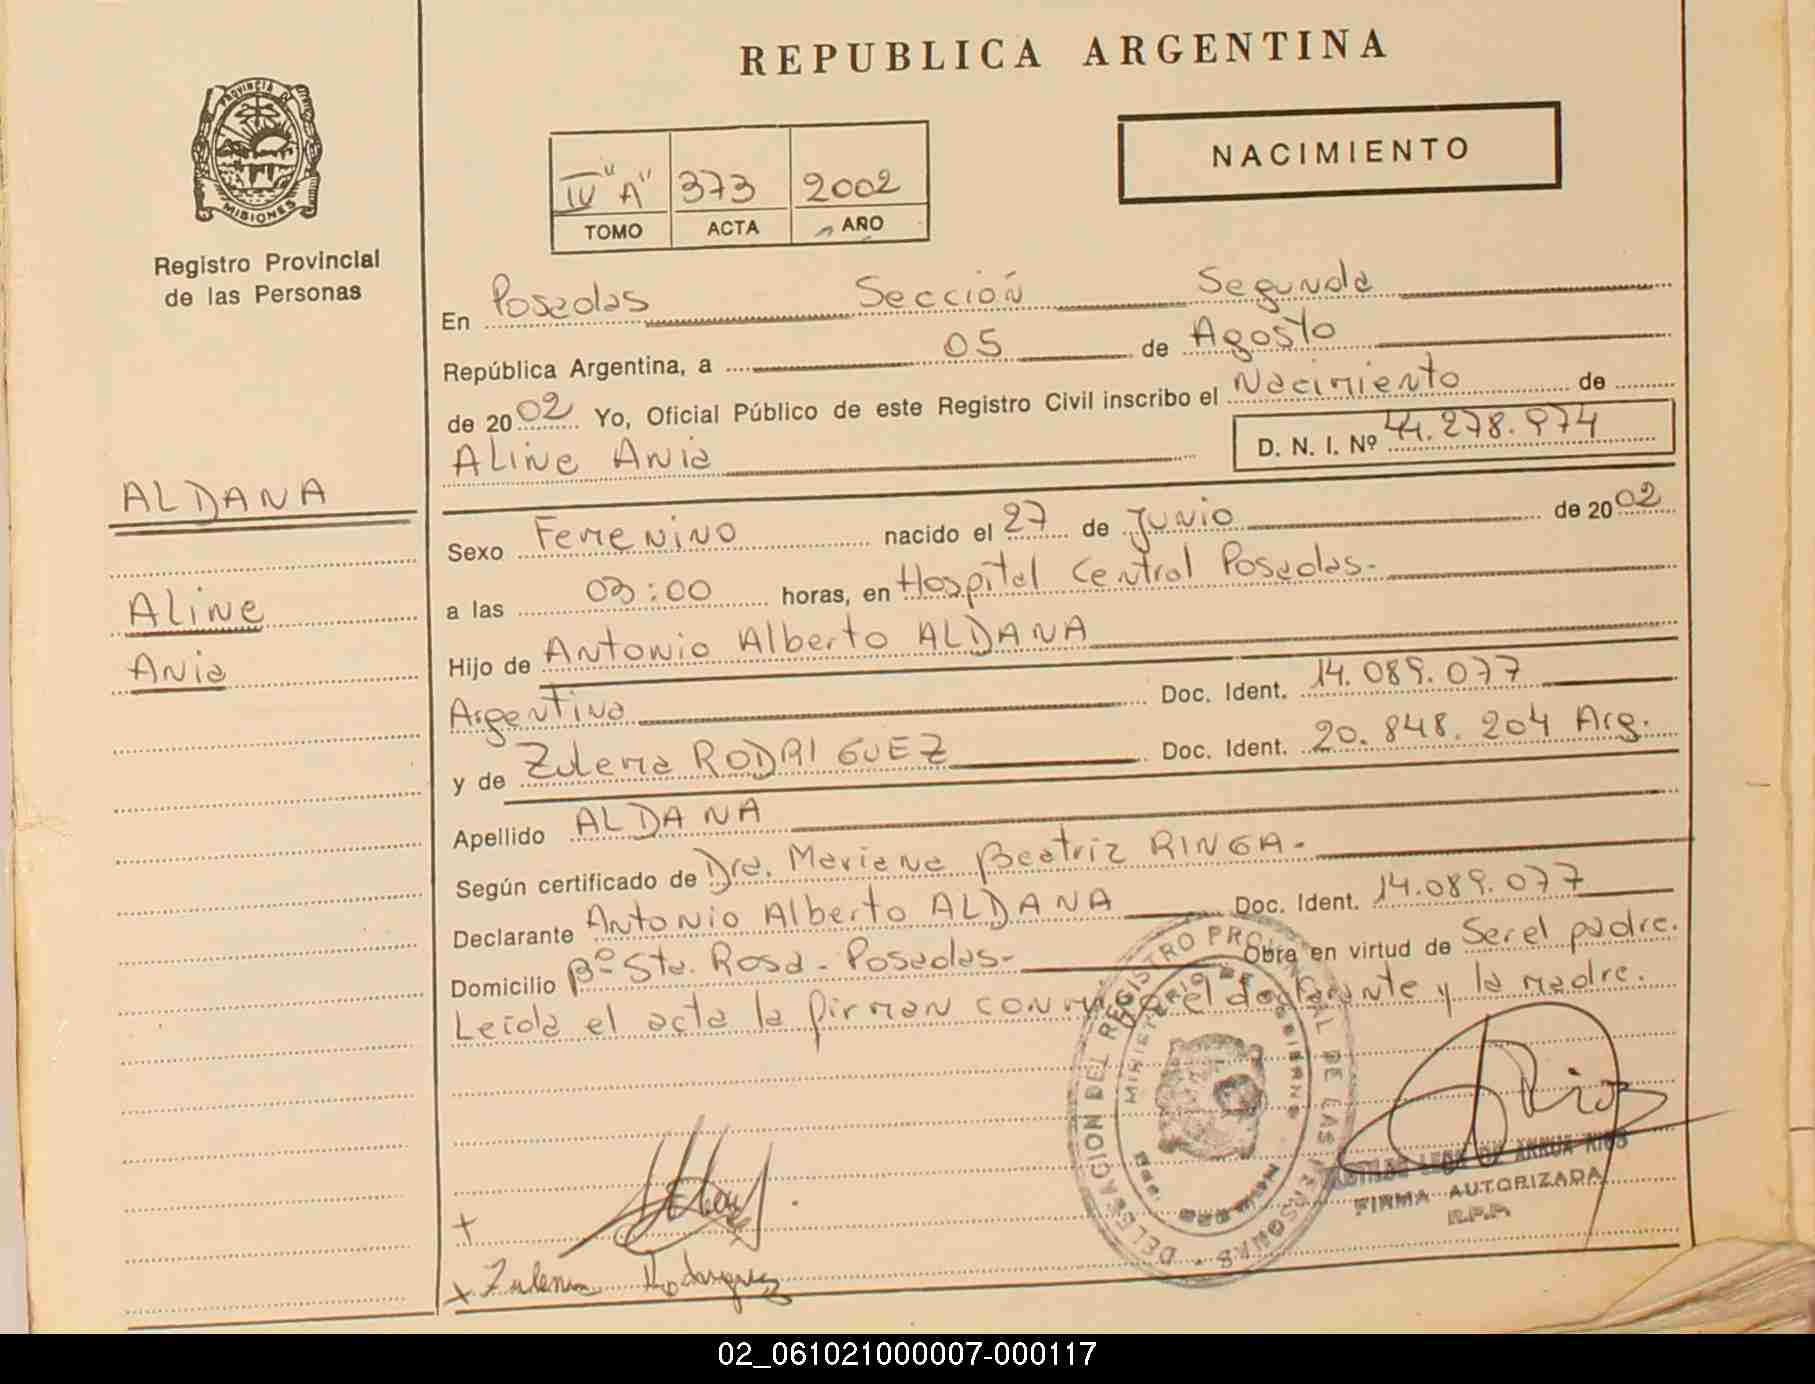 REPUBLICA ARGENTINA
PROVINCIA DE
MISIONES
Registro Provincial
de las Personas
NACIMIENTO
IV "A" 373 2002
TOMO ACTA AÑO
En Posadas Sección Segunda
República Argentina, a 05 de Agosto
de 2002 Yo, Oficial Público de este Registro Civil inscribo el Nacimiento de
Aline Ania D. N. I. Nº 44.278.974
ALDANA
Aline
Ania
Sexo Femenino nacido el 27 de Junio de 2002
a las 03:00 horas, en Hospital Central Posadas.
Hijo de Antonio Alberto ALDANA
Argentino Doc. Ident. 14.089.077
y de Zulema RODRIGUEZ Doc. Ident. 20.848.204 Arg.
Apellido ALDANA
Según certificado de Dra. Mariana Beatriz RINGA.
Declarante Antonio Alberto ALDANA Doc. Ident. 14.089.077
Domicilio Bº Sta. Rosa - Posadas- Obra en virtud de Ser el padre.
Leída el acta la firman conmigo el declarante y la madre.
DELEGACION DEL REGISTRO PROVINCIAL DE LAS PERSONAS
MINISTERIO DE GOBIERNO
Rios
DE ARRUA RIOS
FIRMA AUTORIZADA
R.P.P.
x Zulema Rodriguez
02_061021000007-000117